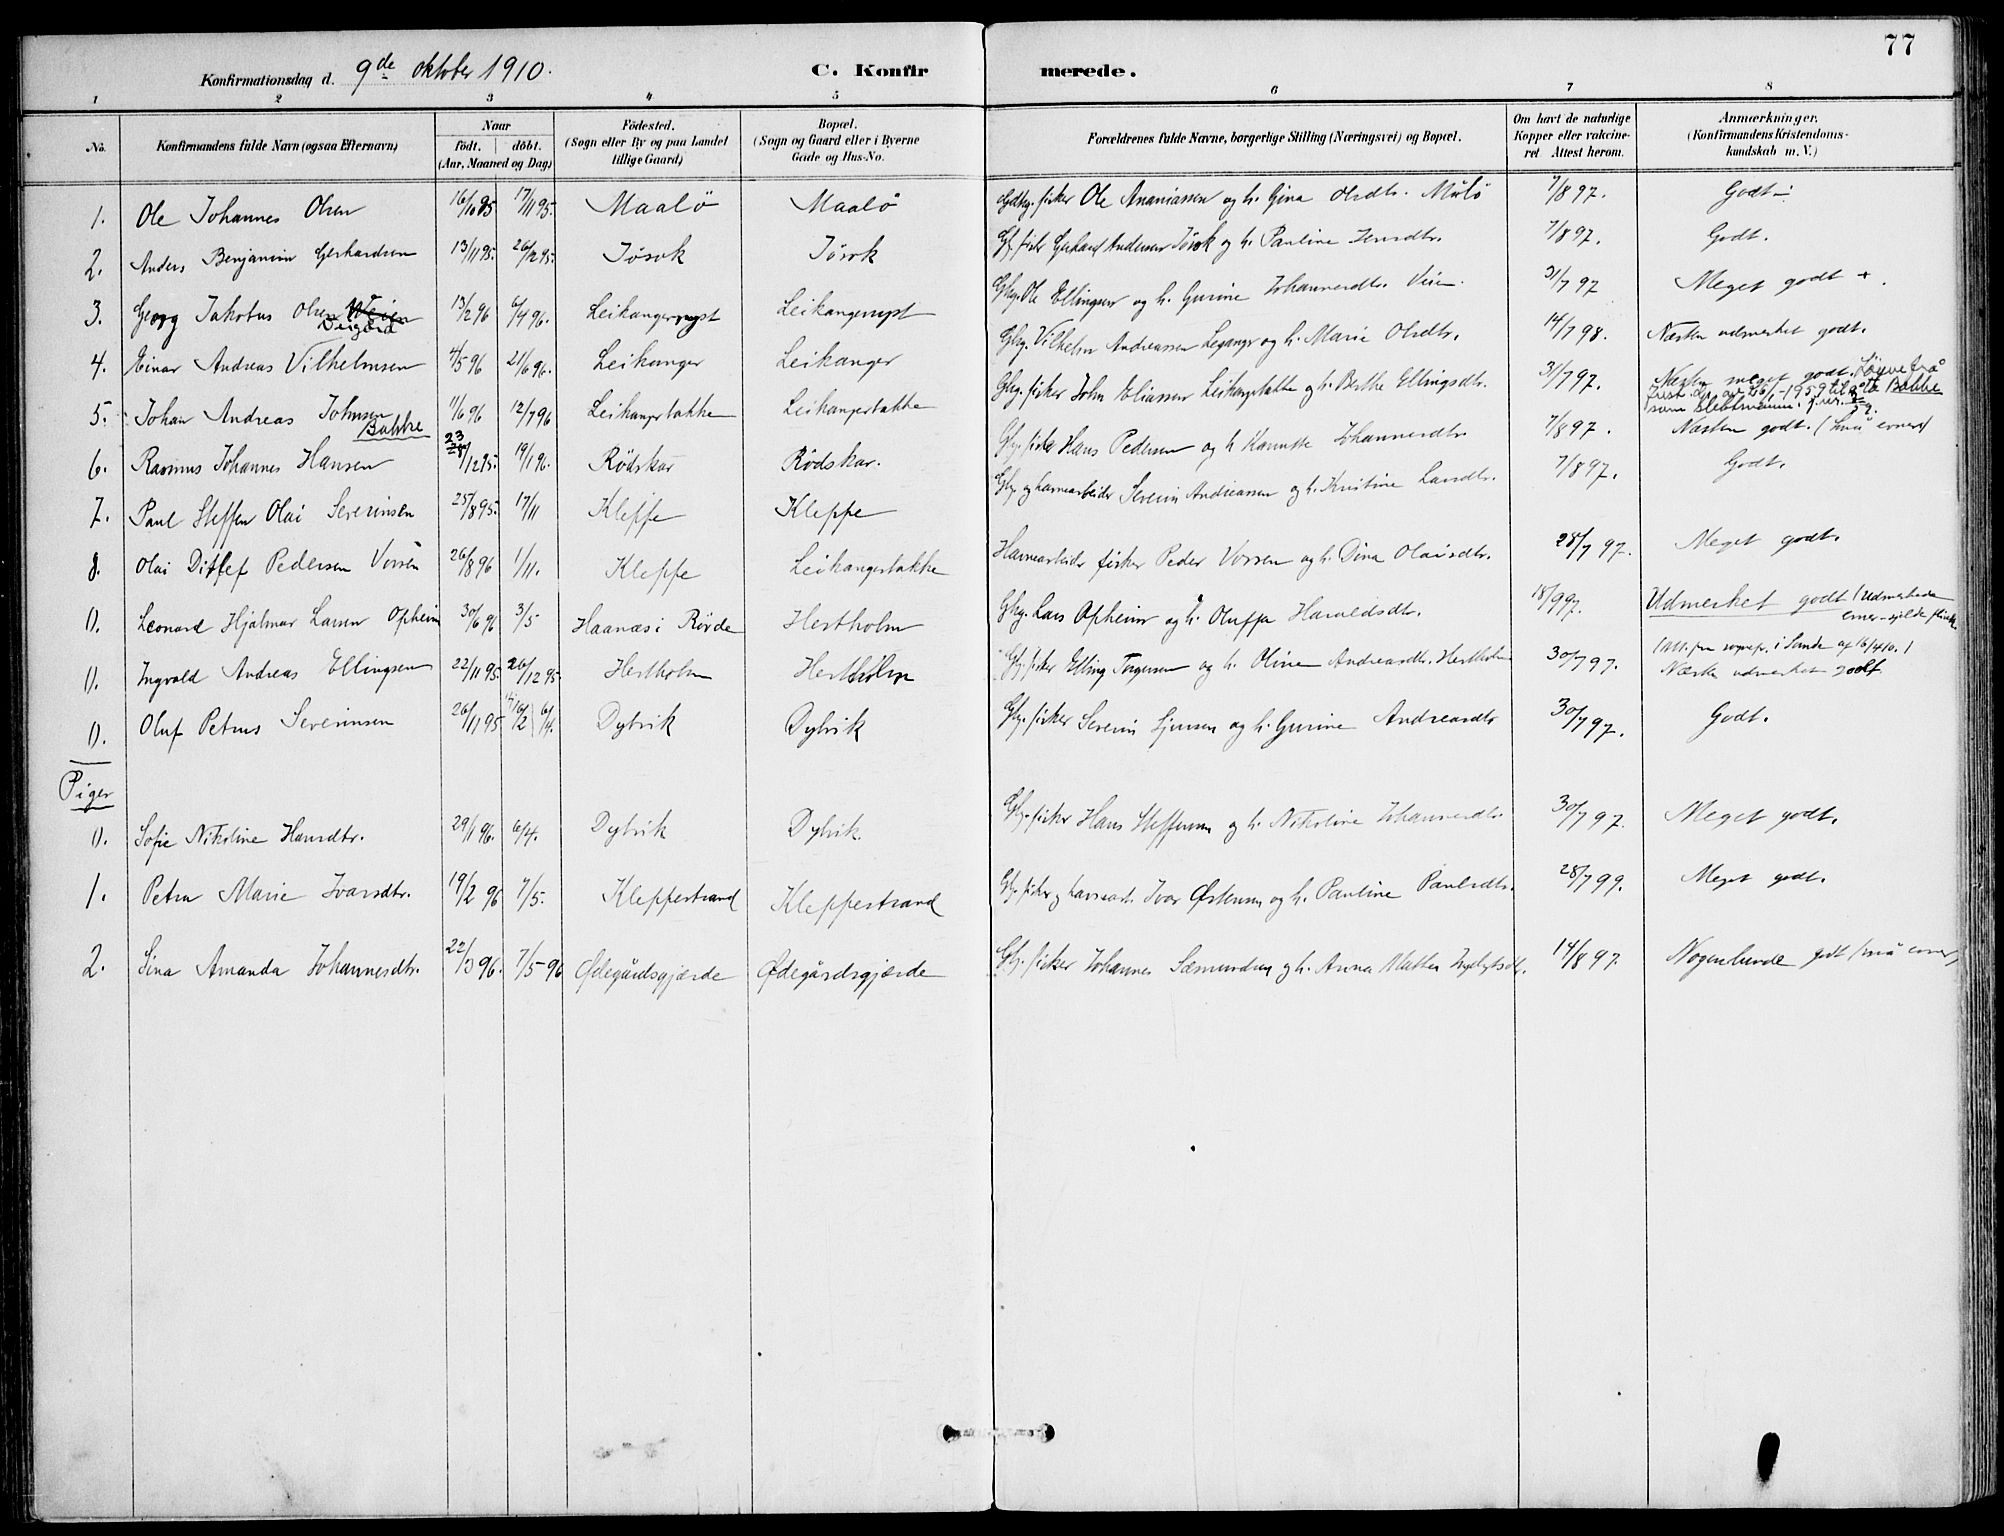 77
Konfirmationsdag d. 9de oktober 1910. C. Konfirmerede.
1 2 3 4 5 6 7 8
No. Konfirmandens fulde Navn (ogsaa Efternavn) Naar födt. döbt. (Aar, Maaned og Dag) Födested. (Sogn eller By og paa Landet tillige Gaard) Bopæl. (Sogn og Gaard eller i Byerne Gade og Hus-No. Forældrenes fulde Navne, borgerlige Stilling (Næringsvei) og Bopæl. Om havt de naturlige Kopper eller vakcineret Attest herom. Anmærkninger. (Konfirmandens Kristendomskundskab m. V.)
1. Ole Johannes Olsen 16/10 95 17/11 95. Maalö Maalö fisker Ole Ananiassen og h. Gina Olsdtr. Målö 7/8 97. Godt
2. Anders Benjamin Gerhardsen 13/11 95. 26/12 95. Jösok Jösok Gbr. fisker Gerhard Andersen Jösok og h. Pauline Jensdtr. 7/8 97. Godt.
3. Georg Jakobus Olsen Weien 13/2 96 6/4 96. Leikangermyst Leikangermyst Gbg. Ole Ellingsen og h. Gurine Johannesdtr. Veien 31/7 97 Meget godt +.
4. Einar Andreas Vilhelmsen 4/5 96 21/6 96. Leikanger Leikanger Gbg. Vilhelm Andreassen Leganger og h. Marie Olsdtr. 14/7 98. Næsten udmerket godt.
5. Johan Andreas Johnsen Bakke 11/6 96 12/7 96 Leikangerbakke Leikangerbakke Gbg. fisker John Eliassen Leikangerbakke og h. Berthe Ellingsdtr. 31/7 97. Næsten meget godt. Løyve frå 1959 til å ta Bakke som slektsnamn.
6. Rasmus Johannes Hansen 23/12 95. 19/1 96. Rödskar Rödskar. Gbg. fisker Hans Pedersen og h. Johannesdtr. 7/8 97. Næsten godt. (små evner)
7. Paul Steffen Olai Severinsen 25/8 95. 17/11 Kleppe Kleppe Gbg. og havnearbeider Severin Andreassen og h. Kristine Larsdtr. 7/8 97. Godt.
8. Olai Ditlef Pedersen Vorren 26/8 96 1/11. Kleppe Leikangerbakke Havnearbeider fisker Peder Vorren og h. Dina Olaisdtr. 28/7 97. Meget godt.
0. Leonard Hjalmar Larsen Opheim 30/6 96 3/5 Haanæs i Rövde Hestholm Gbg. Lars Opheim og h. Oluffa Haraldsdtr. 18/9 97. Udmerket godt (Udmerkede evner
0. Ingvald Andreas Ellingsen 22/11 95. 26/12 95. Hestholm Hestholm Gbg. fisker Elling Torgersen og h. Oline Andreasdtr. Hestholm 30/7 97. (Att. fra sognepr. i Sande af 16/4 10.) Næsten udmerket godt.
0. Oluf Petrus Severinsen 26/11 95 16/2 6/4. Dybvik Dybvik Gbg. fisker Severin og h. Gurine Andreasdtr 30/7 97. Godt.
Piger
0. Sofie Nikoline Hansdtr. 29/1 96. 6/4. Dybvik Dybvik Gbg. fisker Hans Steffensen og h. Nikoline Johannesdtr. 30/7 97. Meget godt.
1. Petra Marie Ivarsdtr. 19/2 96 7/5. Kleppestrand Kleppestrand Gbg. fisker og havnearb. Ivar Østensen og h. Pauline Paulsdtr. 28/7 99. Meget godt.
2. Sina Amanda Johannesdtr. 22/3 96. 7/5-96 Ødegårdsgjærde Ødegårdsgjærde Gbg. fisker Johannes Sæmundsen og h. Anna 14/8 97. Nogenlunde godt (små evner)